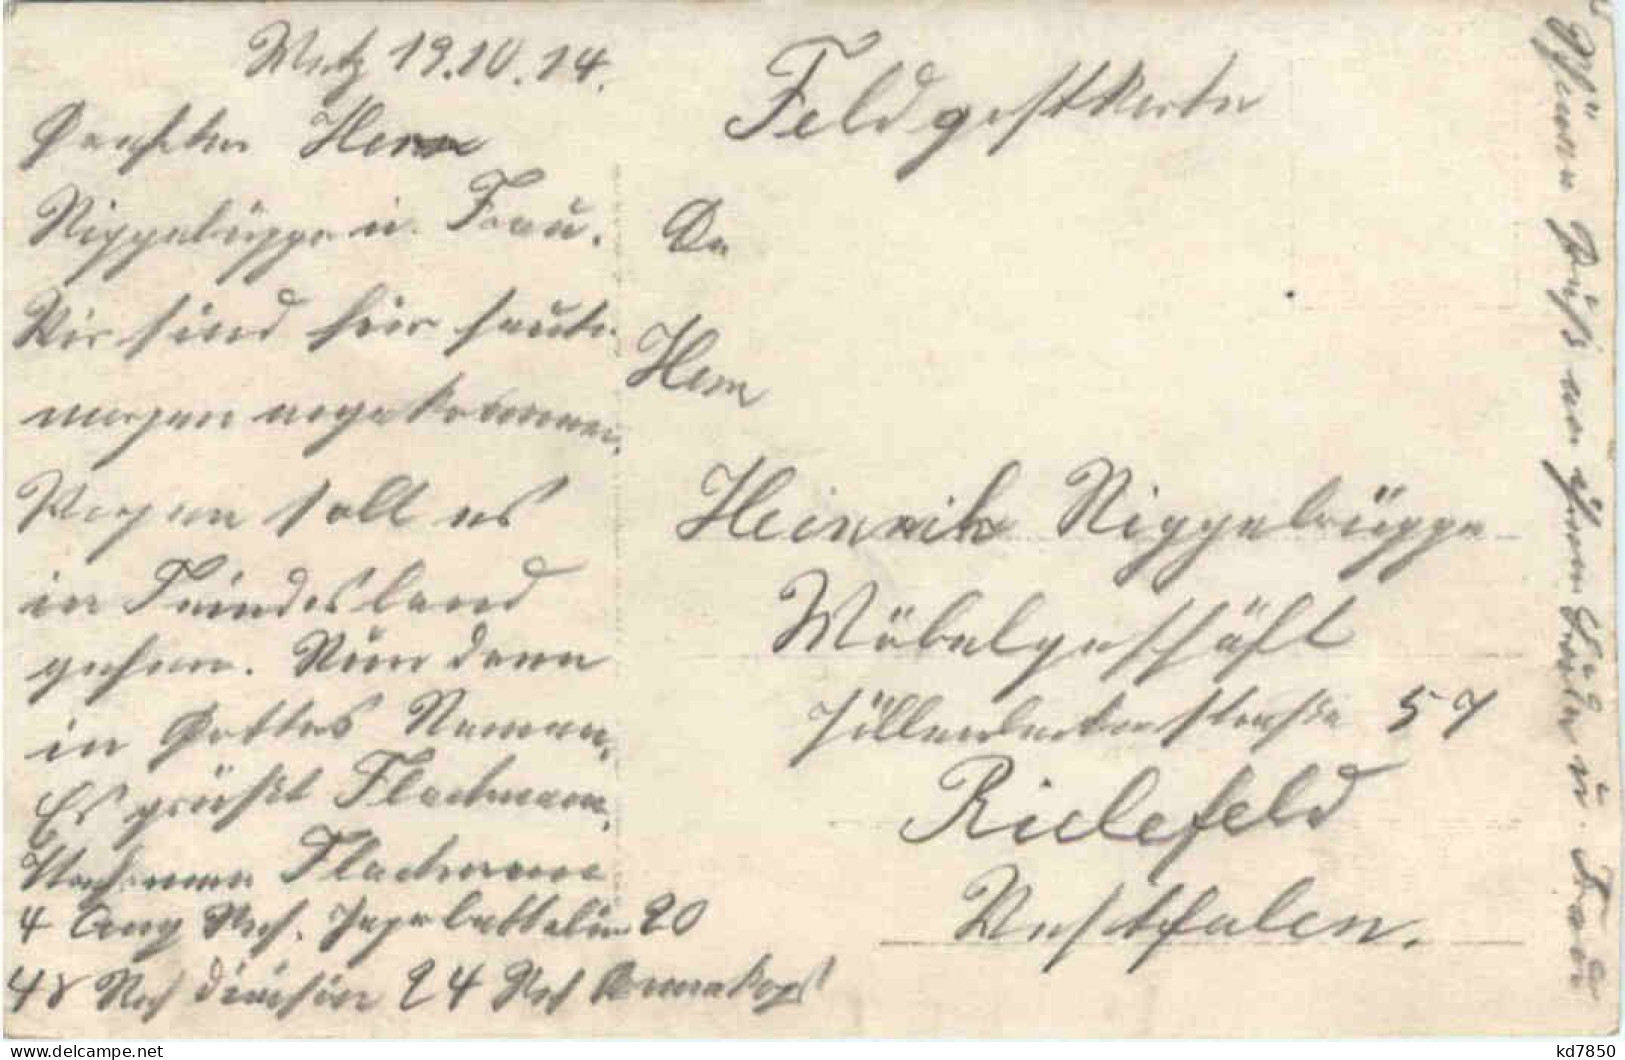 Metz 19.10.14.
Geehrter Herr
Niggebrügge u. Frau.
Wir sind hier heute
morgen angekommen.
Morgen soll es
in Feindesland
gehen. Nun denn
in Gottes Namen.
Es grüßt Flachmann.
Flachmann
4 Comp Res. Jägerbattalion 20
48 Res division 24 Res Armeekops
Feldpostkarte
An
Herrn
Heinrich Niggebrügge
Möbelgeschäft
Jöllenbeckerstraße 57
Bielefeld
Westfalen.
Schönen Gruß an Ihren Bruder u. Frau
kd7850